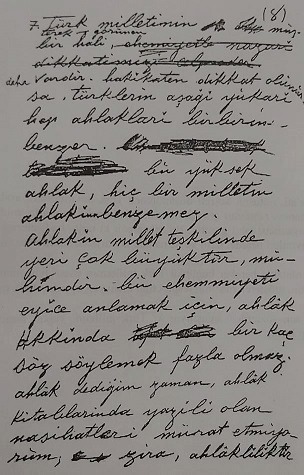 (8)
7. Türk milletinin müş
terek görünen
bir hâli, ehemiyetle nazarı
dikkatimizi
daha vardır. hakikaten dikkat olunur
sa, türklerin aşağı yukarı
hep ahlakları birbirine
benzer. bir yüksek
ahlak, hiç bir milletin
ahlakına benzemez.
Ahlakın millet teşkilinde
yeri çok büyüktür, mü-
himdir. bu ehemmiyeti
eyice anlamak için, ahlâk
hkkında bir kaç
söz söylemek fazla olmaz.
ahlâk dediğim zaman, ahlâk
kitablarında yazılı olan
nasihatleri mürat etmiyo
rum, zira, ahlâklılıktır